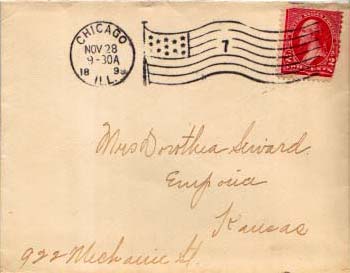 CHICAGO
NOV 28
9-30A
18 9
ILL.
7
Mrs Dorothea Seward.
Emporia
Kansas
922 Mechanic St.